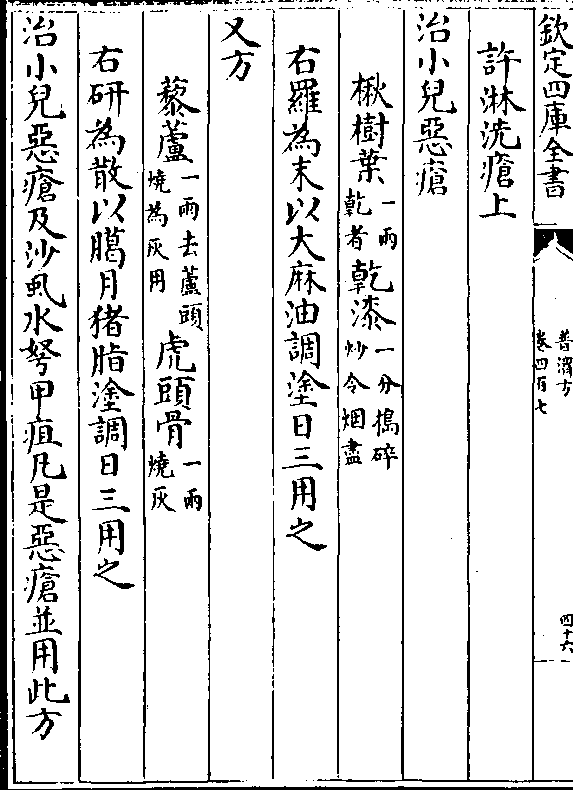 欽定四庫全書
普濟方
卷四百七
四十六
許淋洗瘡上
治小兒惡瘡
楸樹葉一兩乾者 乾漆一分搗碎炒令烟盡
右羅為末以大麻油調塗日三用之
又方
藜蘆一兩去蘆頭燒為灰用 虎頭骨一兩燒灰
右研為散以臈月猪脂塗調日三用之
治小兒惡瘡及沙虱水弩甲疽凡是惡瘡並用此方